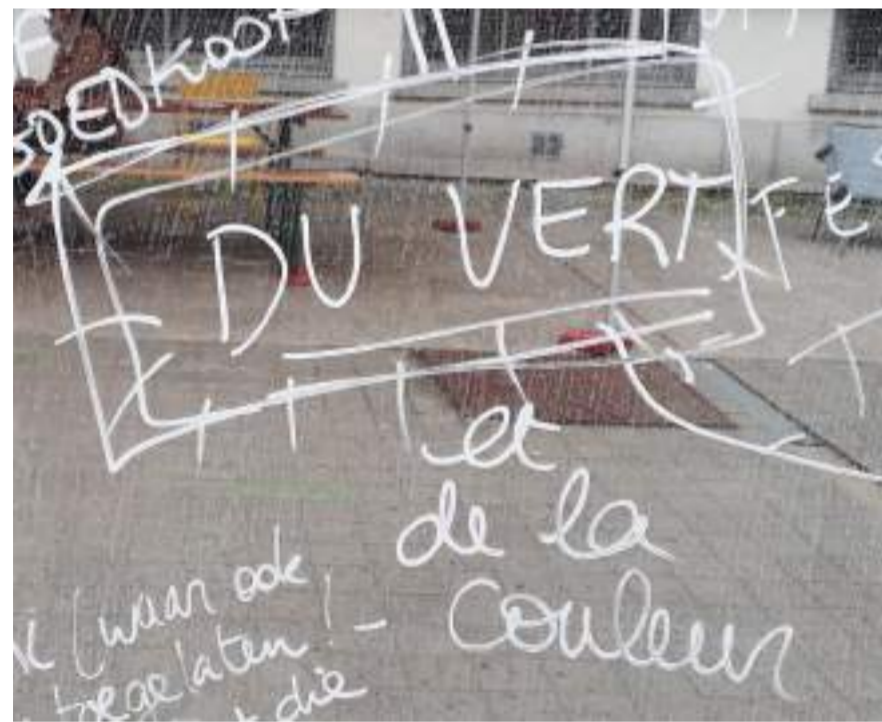 GOEDKOOP
DU VERT
et
de la
couleur
(waar ook
toegelaten! -
die